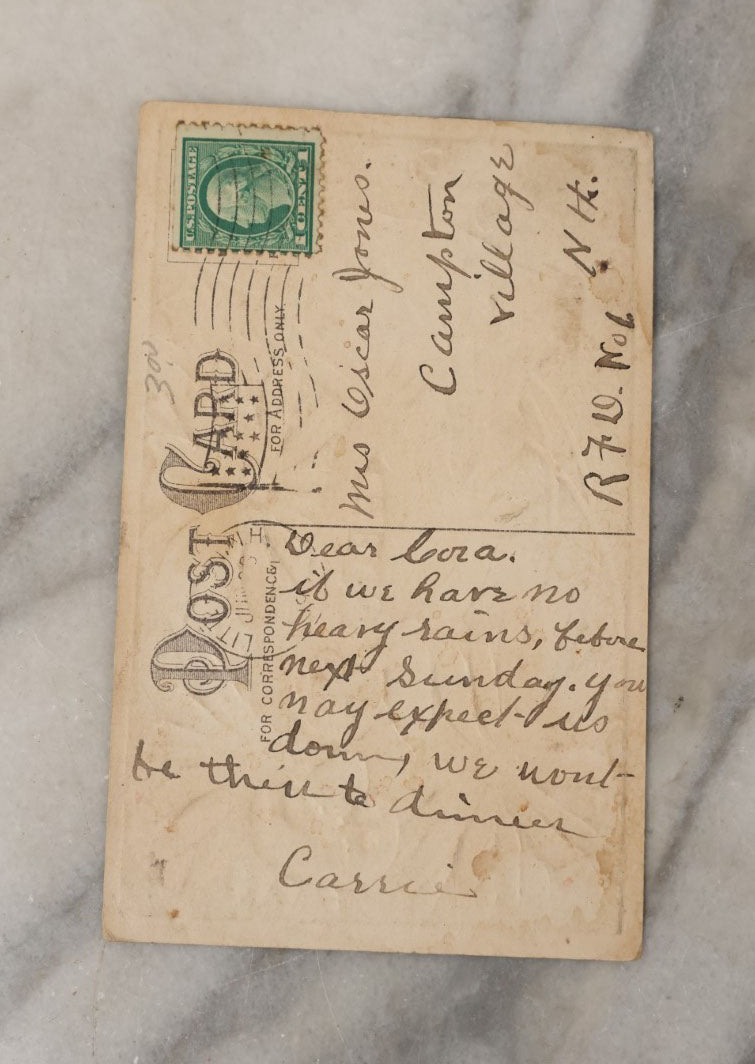 POST CARD
FOR CORRESPONDENCE
FOR ADDRESS ONLY
U.S. POSTAGE
1 CENT 1
300
Mrs Oscar Jones.
Campton
Village
N H.
R F D. No 1
Dear Cora.
if we have no
heavy rains, before
next Sunday. you
may expect us
down, we wont
be there to dinner
Carrie